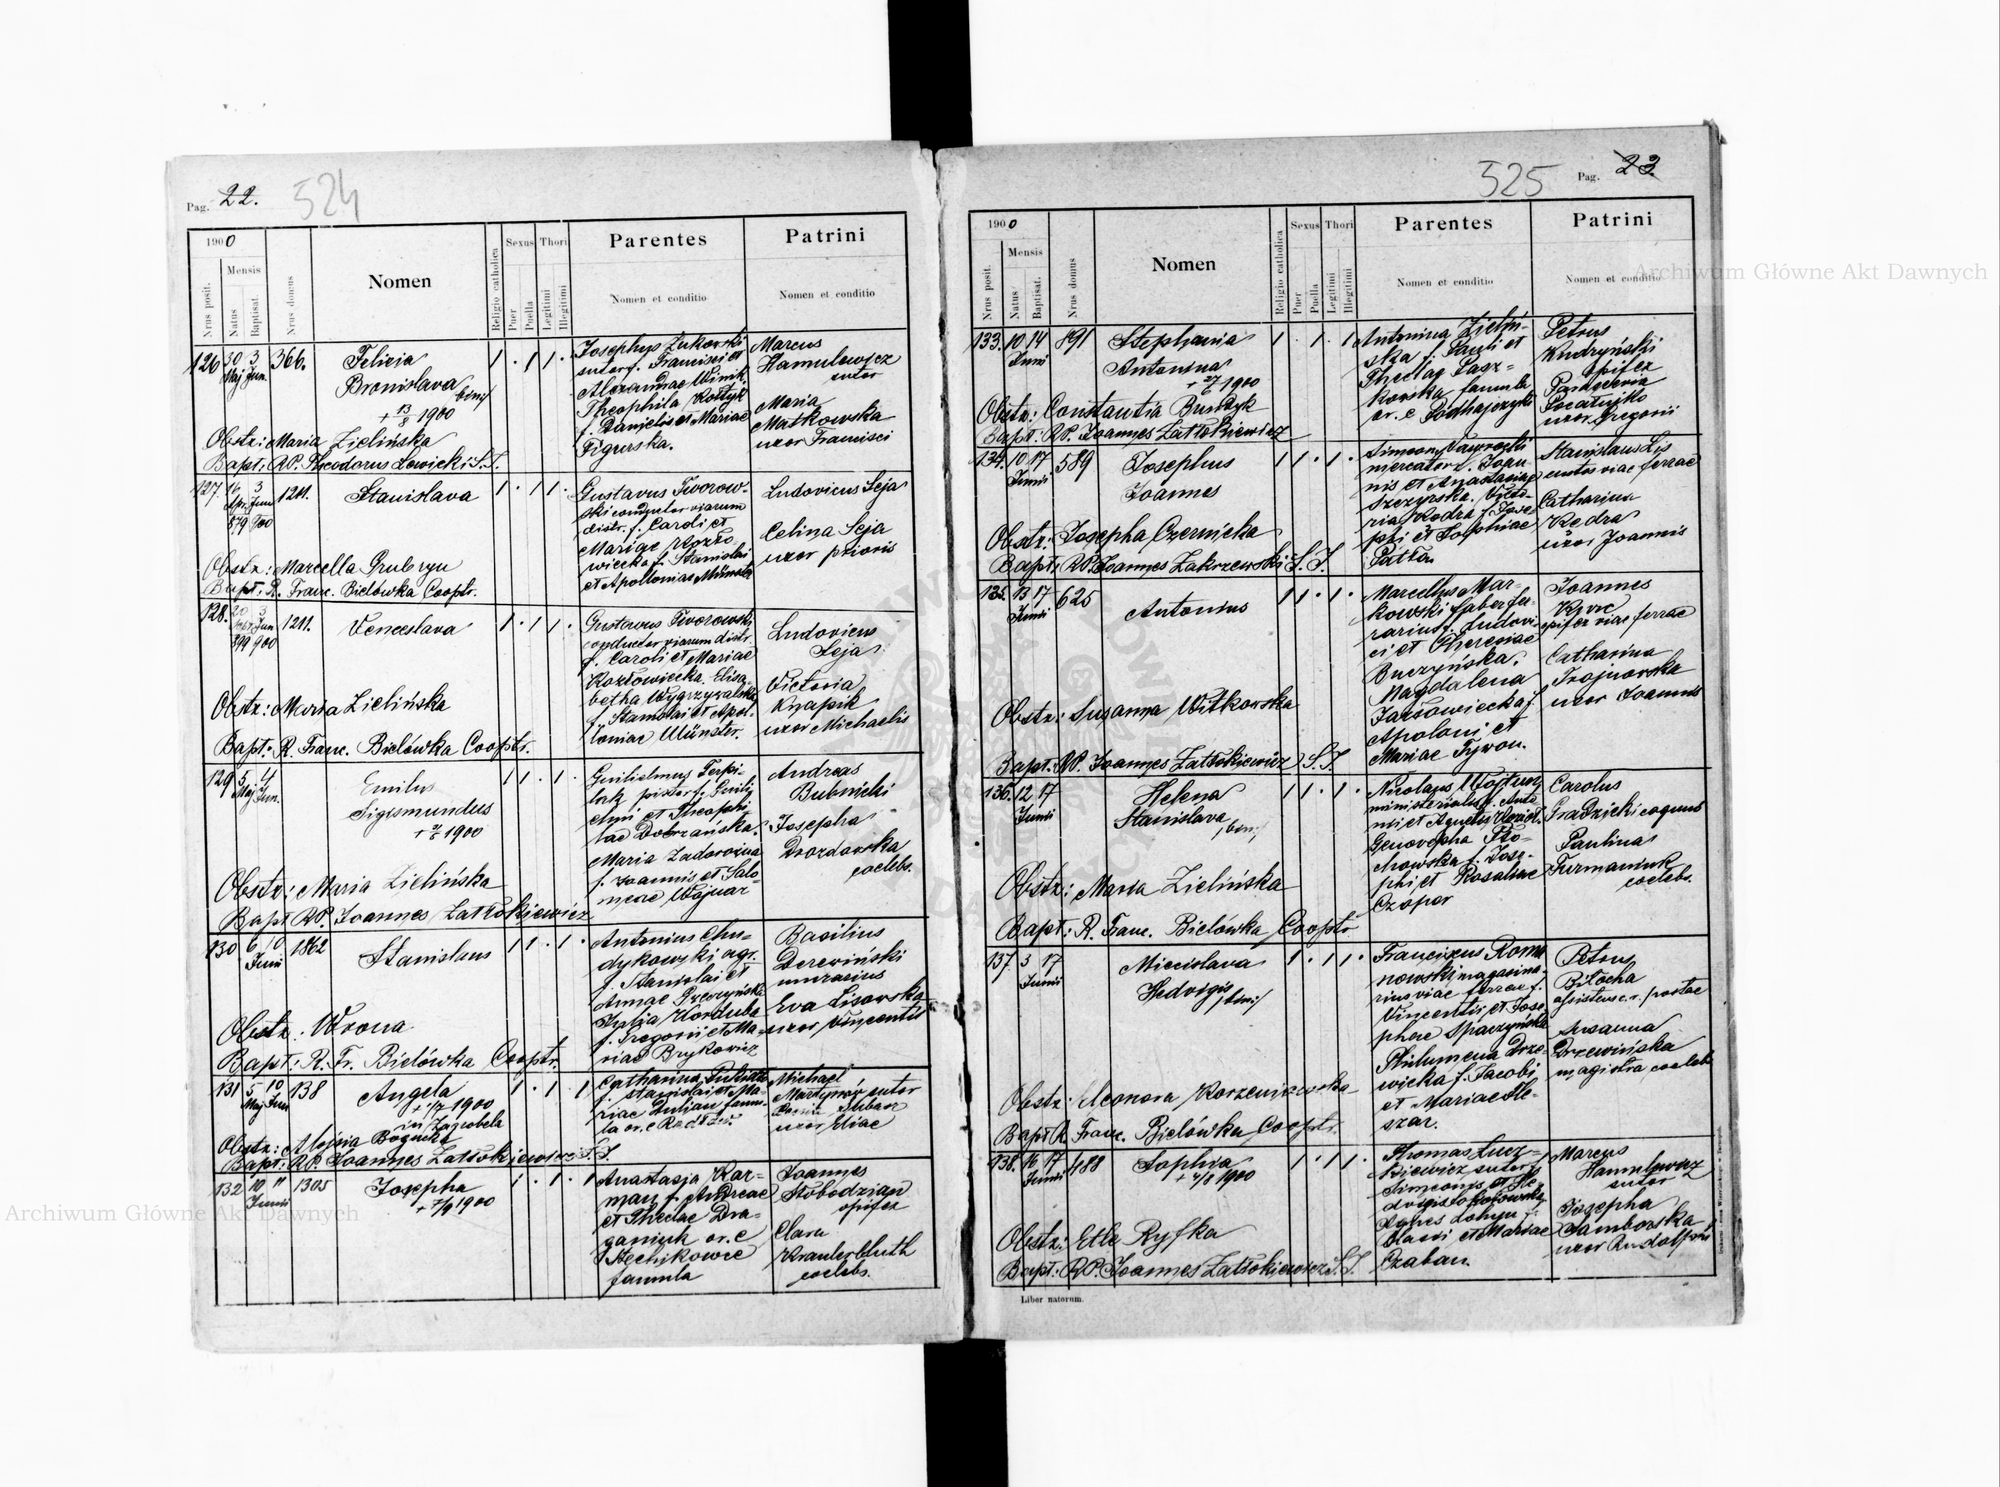 Pag. 22.
524
1900
Nrus posit.
Mensis
Natus
Baptisat.
Nrus domus
Nomen
Religio catholica
Sexus
Puer
Puella
Thori
Legitimi
Illegitimi
Parentes
Nomen et conditio
Patrini
Nomen et conditio
126 30 3 366. Felicia
Maj Jun. Bronislava
+ 13/8 1900
Obstr: Maria Zielińska
Bapt: RP. Theodorus Lewicki S.J.
Josephus Żukowski
sutor f. Francisci et
Alexandrae Winik,
Theophila Kostyk
f. Danielis et Mariae
Figurska.
Marcus
Hamulewicz
sutor
Maria
Matkowska
uxor Francisci
127. 16 3 1211. Stanislava
Apr. Jun
879 900
Obstr: Marcella
Bapt: R. Franc. Bielówka Cooptr.
Gustavus Tworow-
ski conductor viarum
distr. f. Caroli et
Mariae Kozło-
wiecka f. Stanislai
et Apolloniae Münster
Ludovicus Seja
Celina Seja
uxor prioris
128. 20 3 1211. Venceslava
Jun
899 900
Obstr: Maria Zielińska
Bapt: R. Franc. Bielówka Cooptr.
Gustavus Tworowski
conductor viarum distr.
f. Caroli et Mariae
Kozłowiecka. Elisa-
betha Wygrzywalska
f. Stanislai et Apol-
loniae Münster.
Ludovicus
Seja
Victoria
Knapik
uxor Michaelis
129 5 4 Emilus
Maj Jun. Sigismundus
1900
Obstr: Maria Zielińska
Bapt RP. Joannes Zatłokiewicz
Guilielmus Terpi-
lak pistor f. Guili
elmi et Theophi-
lae Dobrzańska.
Maria Zadorożna
f. Joannis et Salo-
meae Wajnar
Andreas
Bubnicki
Josepha
Drozdowska
coelebs.
130 6 10 1862 Stanislaus
Junii
Obstr: Wrona
Bapt: R. Fr. Bielówka Cooptr.
Antonius Chu-
dykowski agr.
f. Stanislai et
Annae
Horduba
f. Gregorii et Ma-
riae Brykowicz
Basilius
Derewiński
murarius
Eva Lisowska
uxor Vincentii
131 5 10 138 Angela
Maj Jun 1900
in Zagrobela
Obstr: Alojsia Bogucka
Bapt: RP. Joannes Zatłokiewicz S.J.
Catharina
f. Stanislai et Ma-
riae Julian famu-
la or. e
Michael
Martynów sutor
uxor Eliae
132 10 11 1305 Josepha
Junii 1900
Anastasia Kar-
man f. Andreae
et Theclae Dra-
ganiuk or. e
Stechnikowce
famula
Joannes
Słobodzian
opifex
Clara
coelebs.
525
Pag. 23
1900
Nrus posit.
Mensis
Natus
Baptisat.
Nrus domus
Nomen
Religio catholica
Sexus
Puer
Puella
Thori
Legitimi
Illegitimi
Parentes
Nomen et conditio
Patrini
Nomen et conditio
133. 10 14 891 Stephania
Junii Antonina
+ 1900
Obstr: Constantia
Bapt: RP. Joannes Zatłokiewicz
Antonina Zieliń-
ska f. Pauli et
Theclae Zagr-
famula
or. e Podhajczyki
Petrus
Kudryński
opifex
uxor Gregorii
134. 10 17 589 Josephus
Junii Joannes
Obstr: Josepha Czernicka
Bapt: RP. Joannes Zakrzewski S.J.
Simeon
mercator f. Joan-
nis et Anastasiae
Victo-
ria Kędra f. Jose-
phi et Sophiae
Patła
Stanislaus Lis
custos viae ferrae
Catharina
Kędra
uxor Joannis
135. 13 17 625 Antonius
Junii
Obstr: Susanna Witkowska
Bapt: RP. Joannes Zatłokiewicz S.J.
Marcellus Mar-
kowski faber fer-
rarius f. Ludovi-
ci et Theresiae
Buczyńska.
Magdalena
Jarsowiecka f.
Apoloni et
Mariae
Joannes
opifex viae ferrae
Catharina
Trojnorska
uxor Joannis
136. 12 17 Helena
Junii Stanislava
Obstr: Maria Zielińska
Bapt: R. Franc. Bielówka Cooptr.
Nicolaus
ministerialis f. Anto-
nii et Agnetis
Genovepha
f. Jose-
phi et Rosaliae
Czopor
Carolus
Gradzicki coquus
Paulina
Furmaniuk
coelebs.
137. 3 17 Miecislava
Junii Hedvigis
Obstr: Eleonora Korzeniowska
Bapt R. Franc. Bielówka Cooptr.
Franciscus Roma
nowski magasina-
rius viae ferrae f.
Vincentii et Jose-
phae Sparzyńska
Philumena Drze-
wicka f. Jacobi
et Mariae Ple-
szar.
Petrus
Biłocha
assistens c. r. postae
Susanna
Drzewińska
magistra coelebs
138. 16 17 488 Sophia
Junii 1900
Obstr: Etle Ryfka
Bapt: RP. Joannes Zatłokiewicz S.J.
Thomas Łucz-
kiewicz sutor f.
Simeonis et He-
dvigis
Agnes
et Mariae
Czaban.
Marcus
Hamulewicz
sutor
Josepha
Samborska
uxor Rudolfi
Liber natorum.
Archiwum Główne Akt Dawnych
Archiwum Główne Akt Dawnych